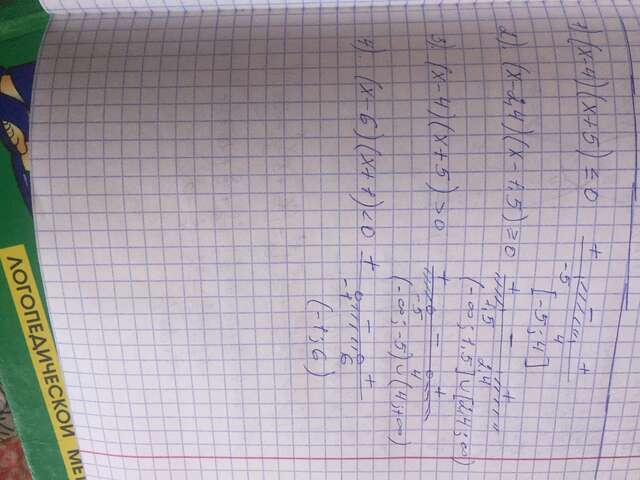 1) (x-4)(x+5) ≤ 0
+ - +
-5 4
[-5; 4]
2). (x-2,4)(x-1,5) ≥ 0
+ - +
1,5 2,4
(-∞; 1,5] ∪ [2,4; ∞)
3) (x-4)(x+5) > 0
+ - +
-5 4
(-∞; -5) ∪ (4; +∞)
4). (x-6)(x+1) < 0
+ - +
-1 6
(-1; 6)
ЛОГОПЕДИЧЕСКОЙ